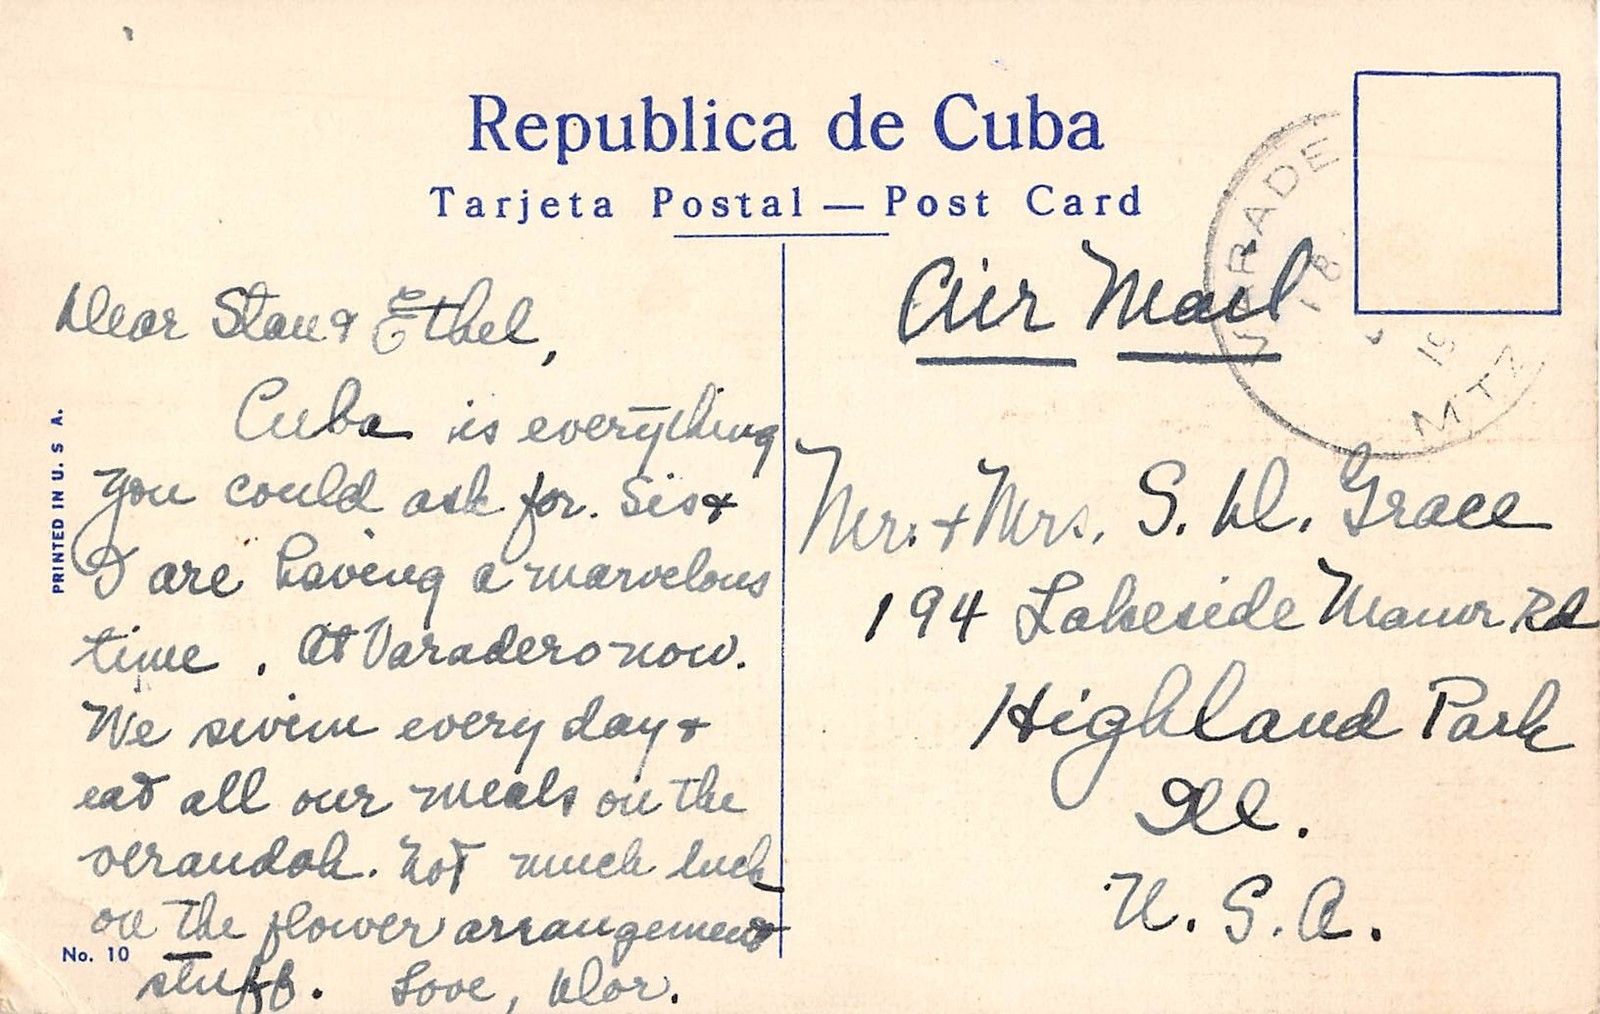 Republica de Cuba
Tarjeta Postal — Post Card
Dear Stan & Ethel,
Cuba is everything
you could ask for. Sis &
I are having a marvelous
time. At Varadero now.
We swim every day &
eat all our meals on the
verandah. Not much luck
on the flower arrangement
stuff. Love, Dor.
PRINTED IN U. S A.
No. 10
Air Mail
VARADE
18
19
MTZ
Mr. + Mrs. S. D. Grace
194 Lakeside Manor Rd
Highland Park
Ill.
U. S. A.